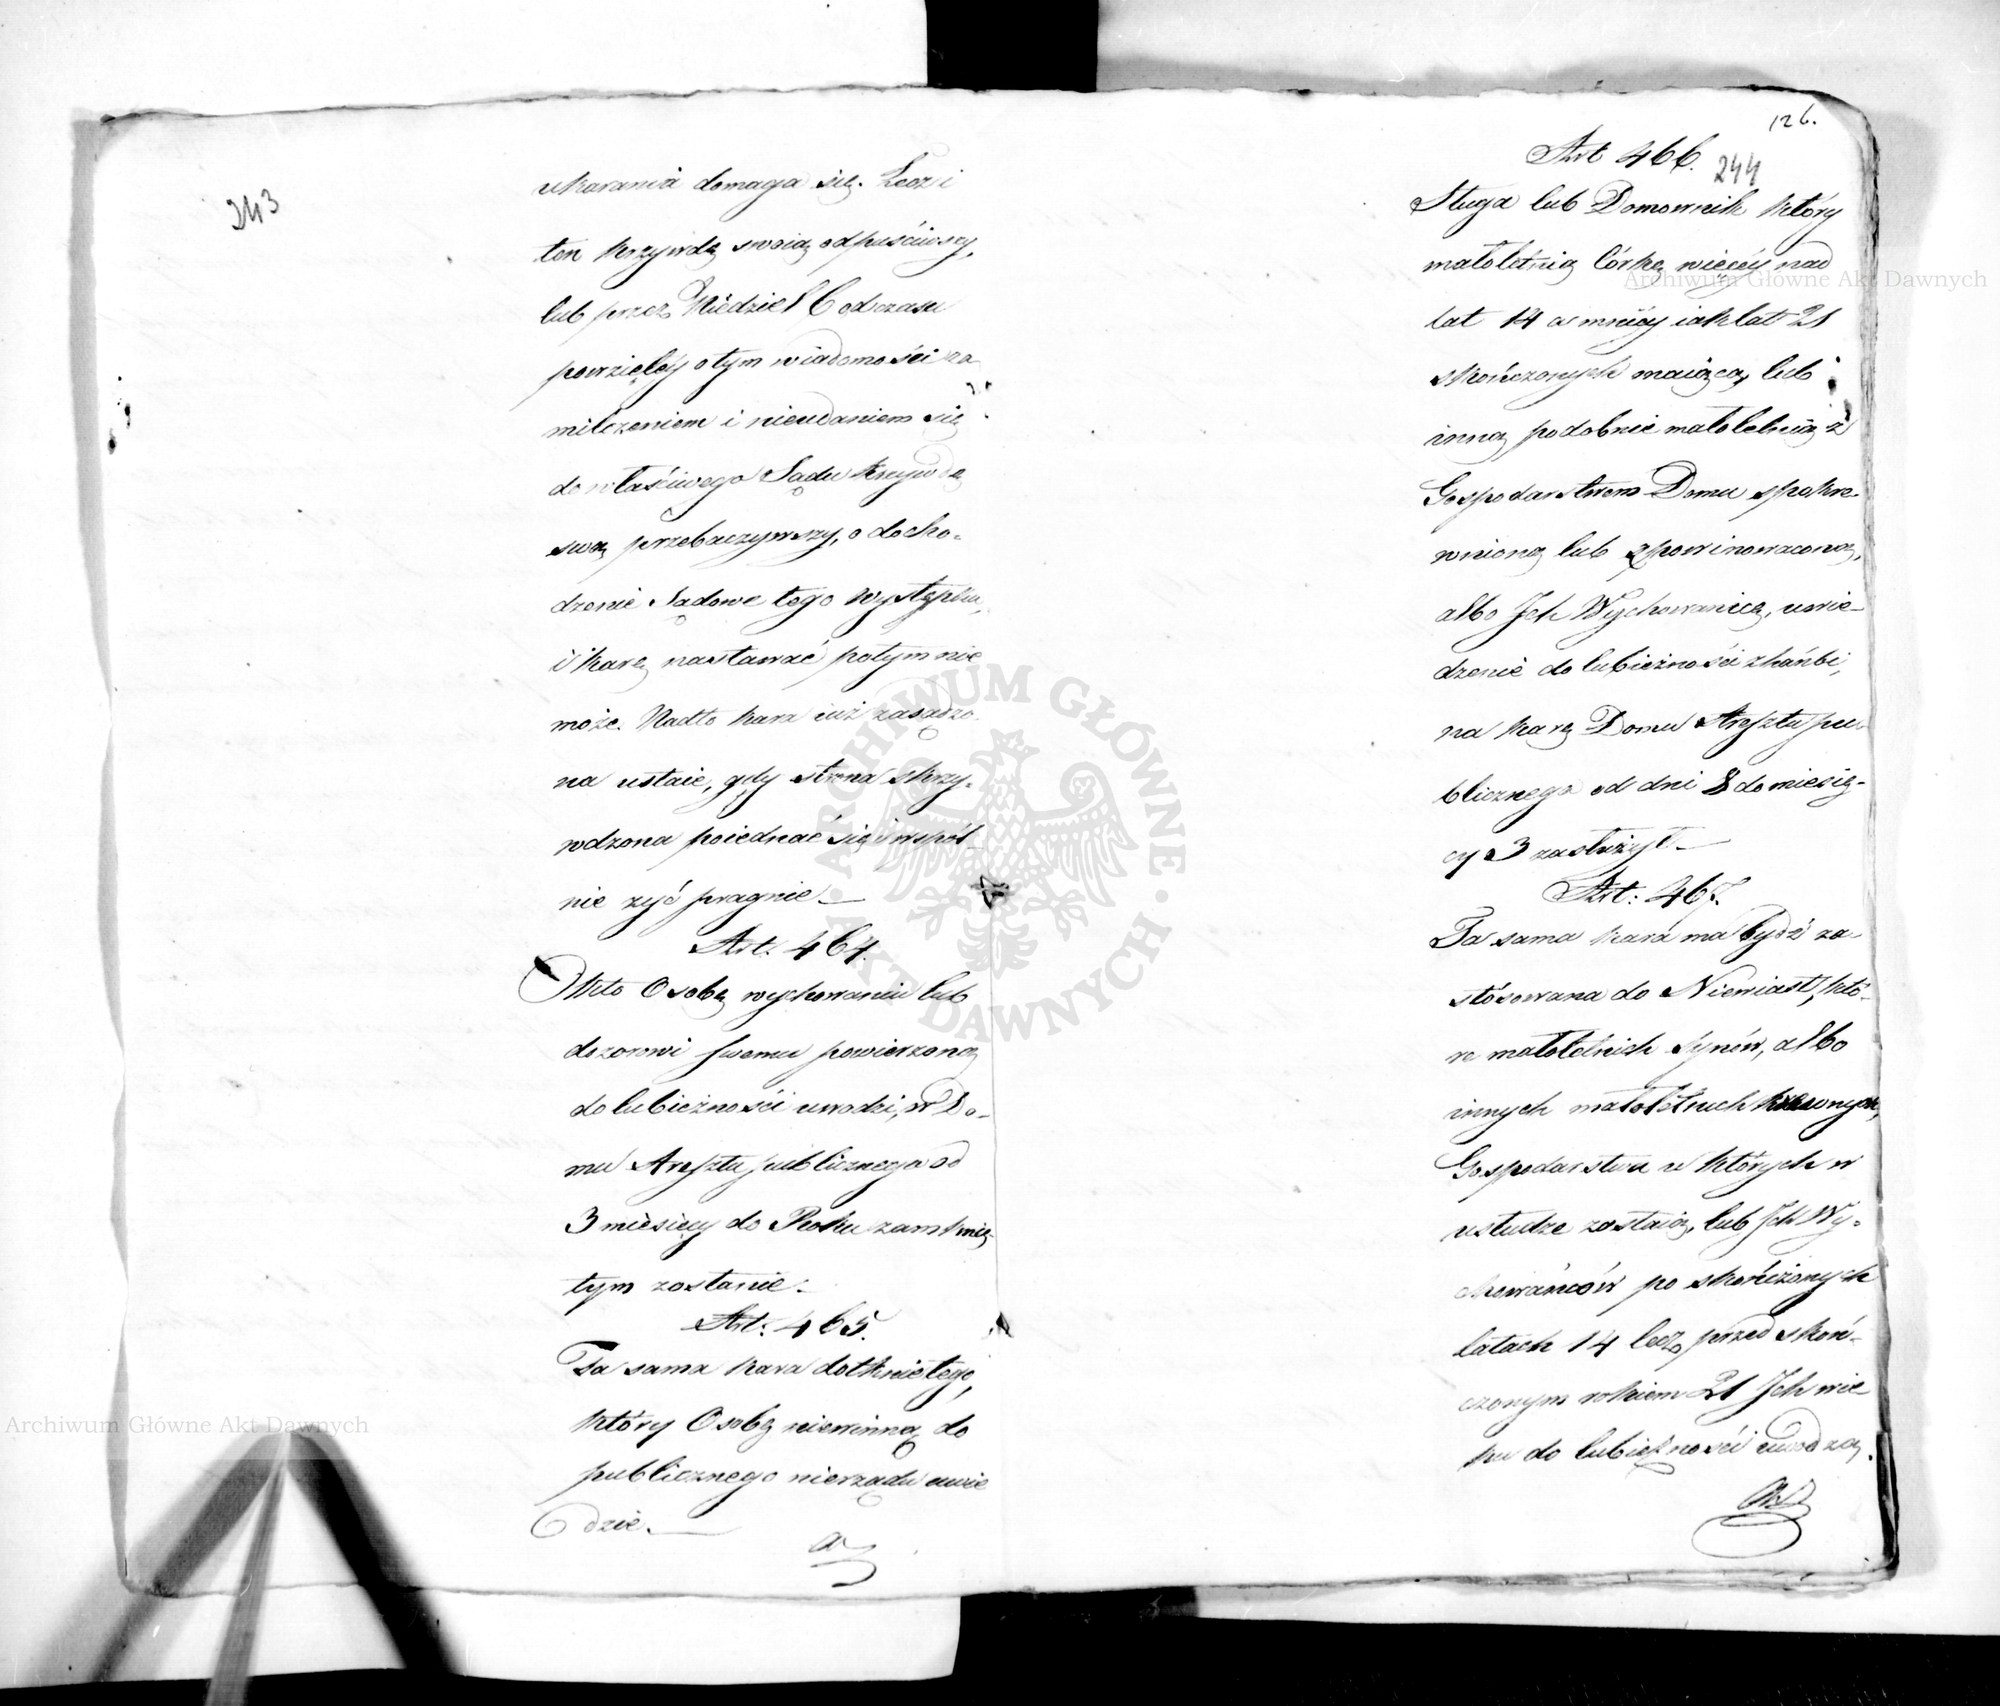 243
ukarania domaga się. Lecz i
ten krzywdę swoią odpuściwszy,
lub przez Niedziel 6 od czasu
powziętéy o tym wiadomości za
milczeniem i nieudaniem się
do właściwego Sądu krzywdę
swą przebaczywszy, o docho-
dzenie Sądowe tego Występku,
i karę nastawać potym nie
może. Nadto kara iuż zasądzo-
na ustaie, gdy strona skrzy-
wdzona poiednać się i wspól-
nie żyć pragnie.
Art. 464.
Kto Osobę wychowaniu lub
dozorowi swemu powierzoną
do lubieżności uwodzi, w Do-
mu Aresztu publicznego od
3 miesięcy do Roku zamknię
tym zostanie.
Art: 465.
Ta sama kara dotknie tego,
który Osobę niewinną do
publicznego nierządu uwie
dzie.
126.
244
Art 466.
Sługa lub Domownik który
małoletnią Córkę więcéy nad
lat 14 a mniéy iak lat 21
skończonych maiącą, lub
inną podobnie małoletnią z
Gospodarstwem Domu spokre-
wnioną lub spowinowaconą,
albo Ich Wychowanicę, uwie-
dzenie do lubieżności zhańbi,
na karę Domu Aresztu pu-
blicznego od dni 8 do miesię-
cy 3 zasłużył.
Art: 467.
Ta sama kara ma bydź za-
stósowana do Niewiast, któ-
re małoletnich Synów, albo
innych małoletnich krewnych,
Gospodarstwa u których w
usłudze zostaią, lub Ich Wy-
chowańców po skończonych
latach 14 lecz przed skoń-
czonym rokiem 21 Ich wie
ku do lubieżności uwodzą.
Archiwum Główne Akt Dawnych
Archiwum Główne Akt Dawnych
ARCHIWUM GŁÓWNE · AKT DAWNYCH ·